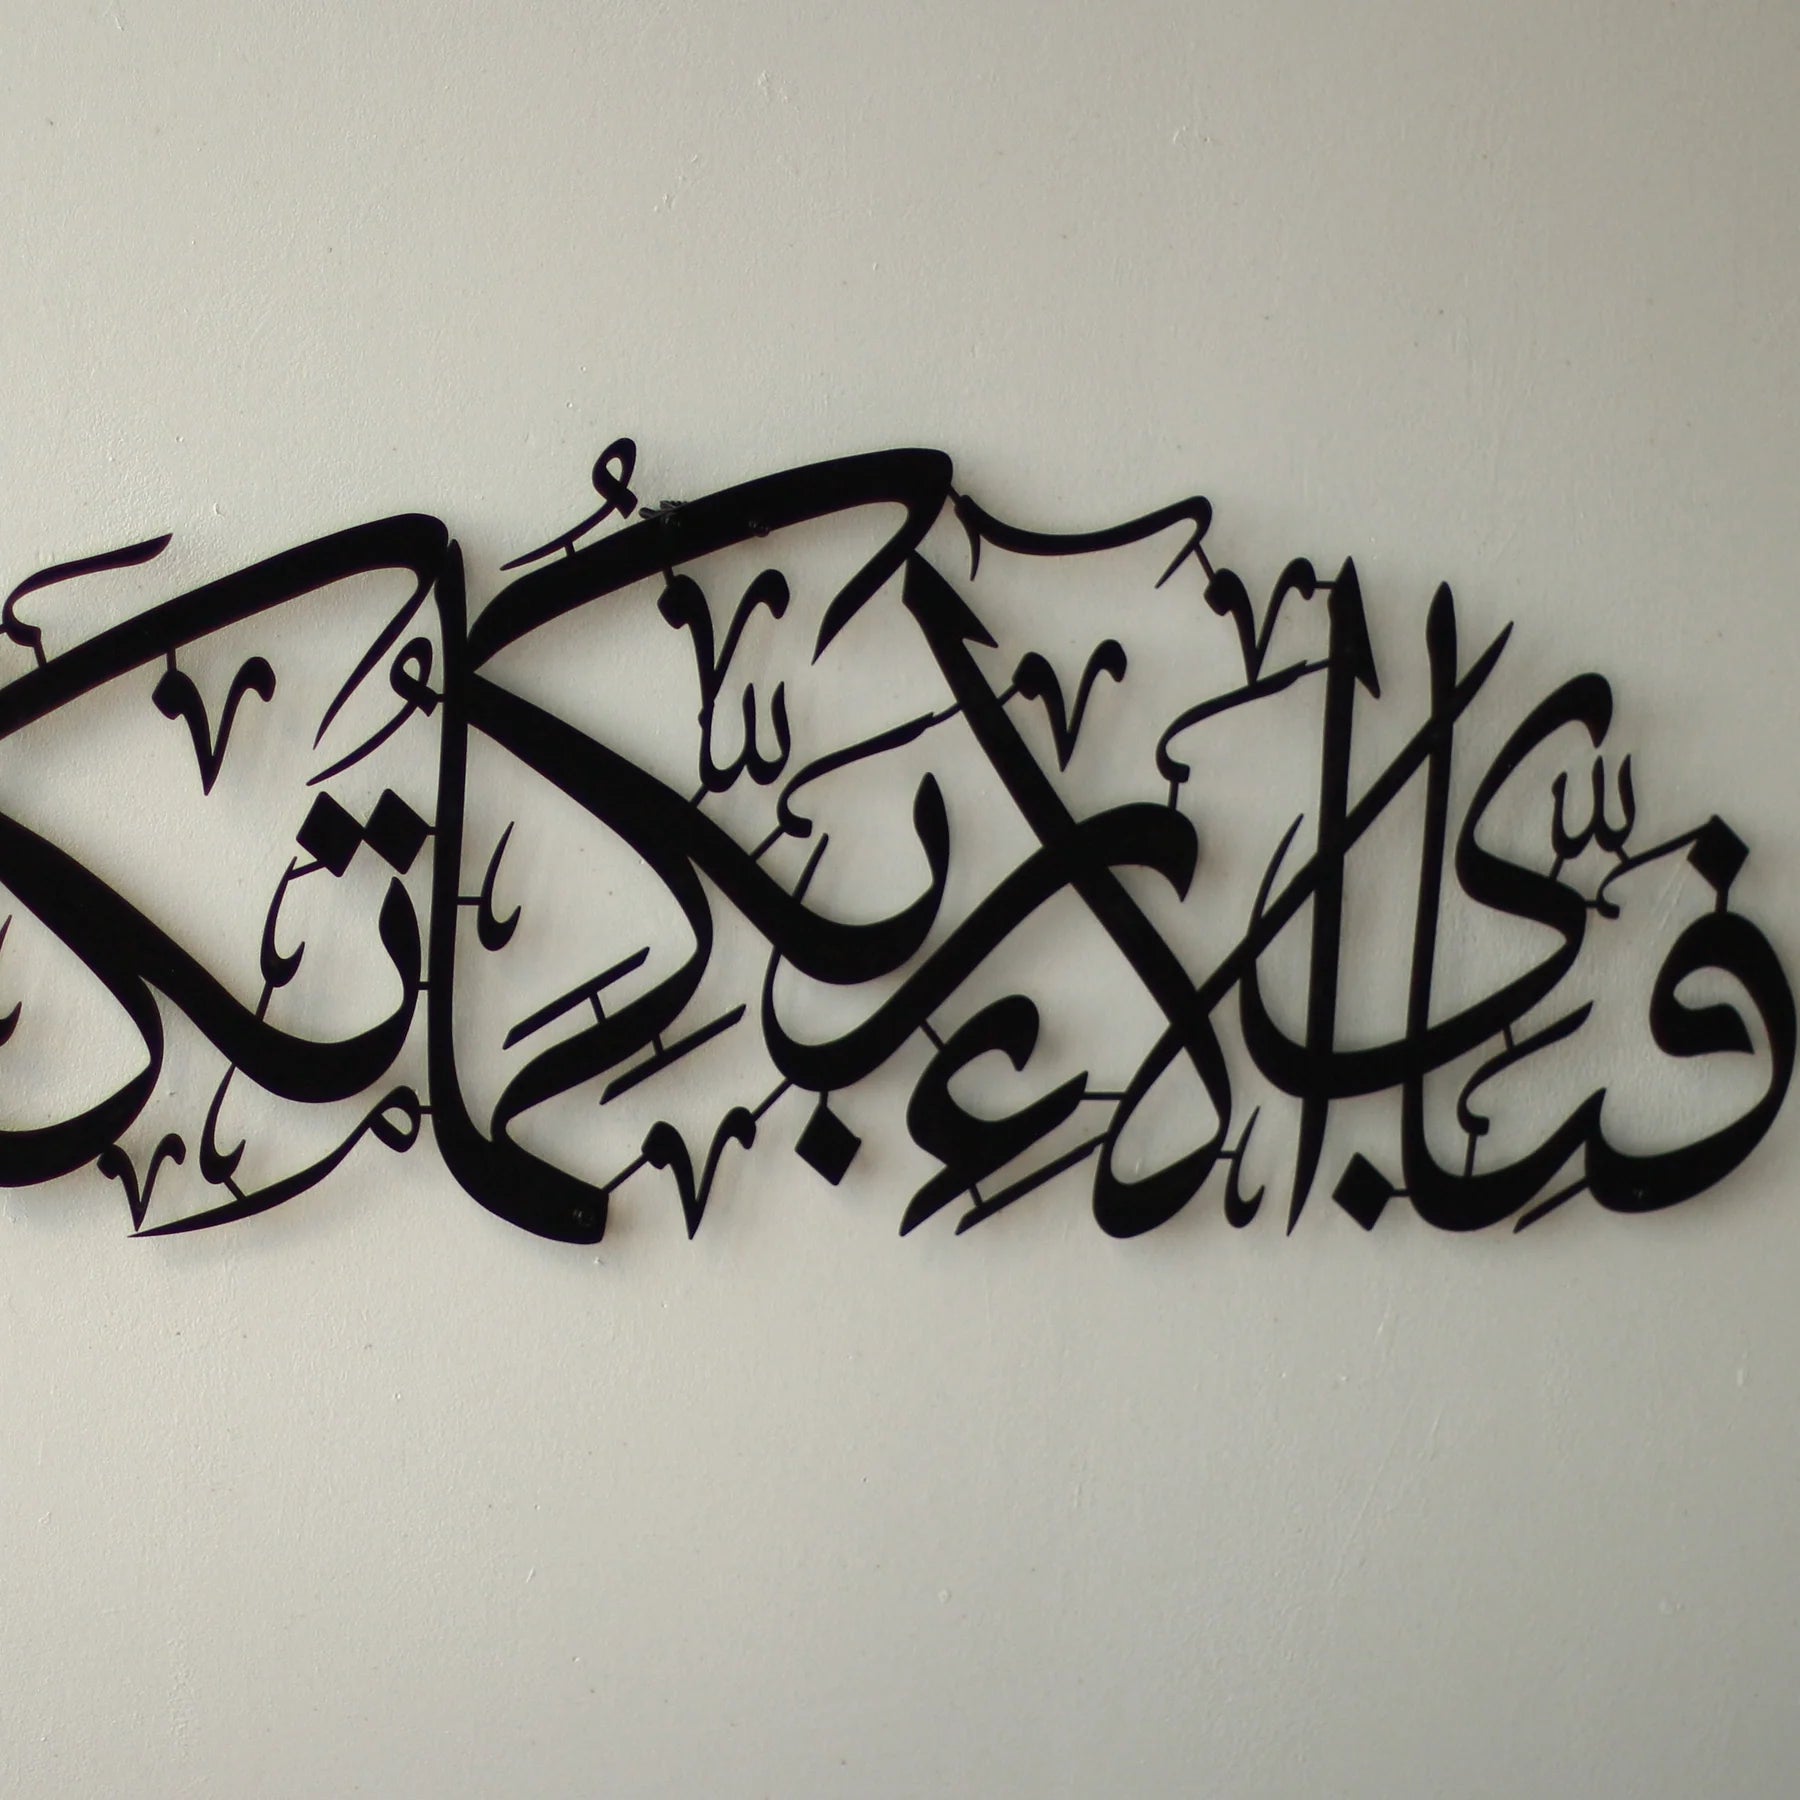 فَبِأَيِّ آلَاءِ رَبِّكُمَا تُكَذِّ